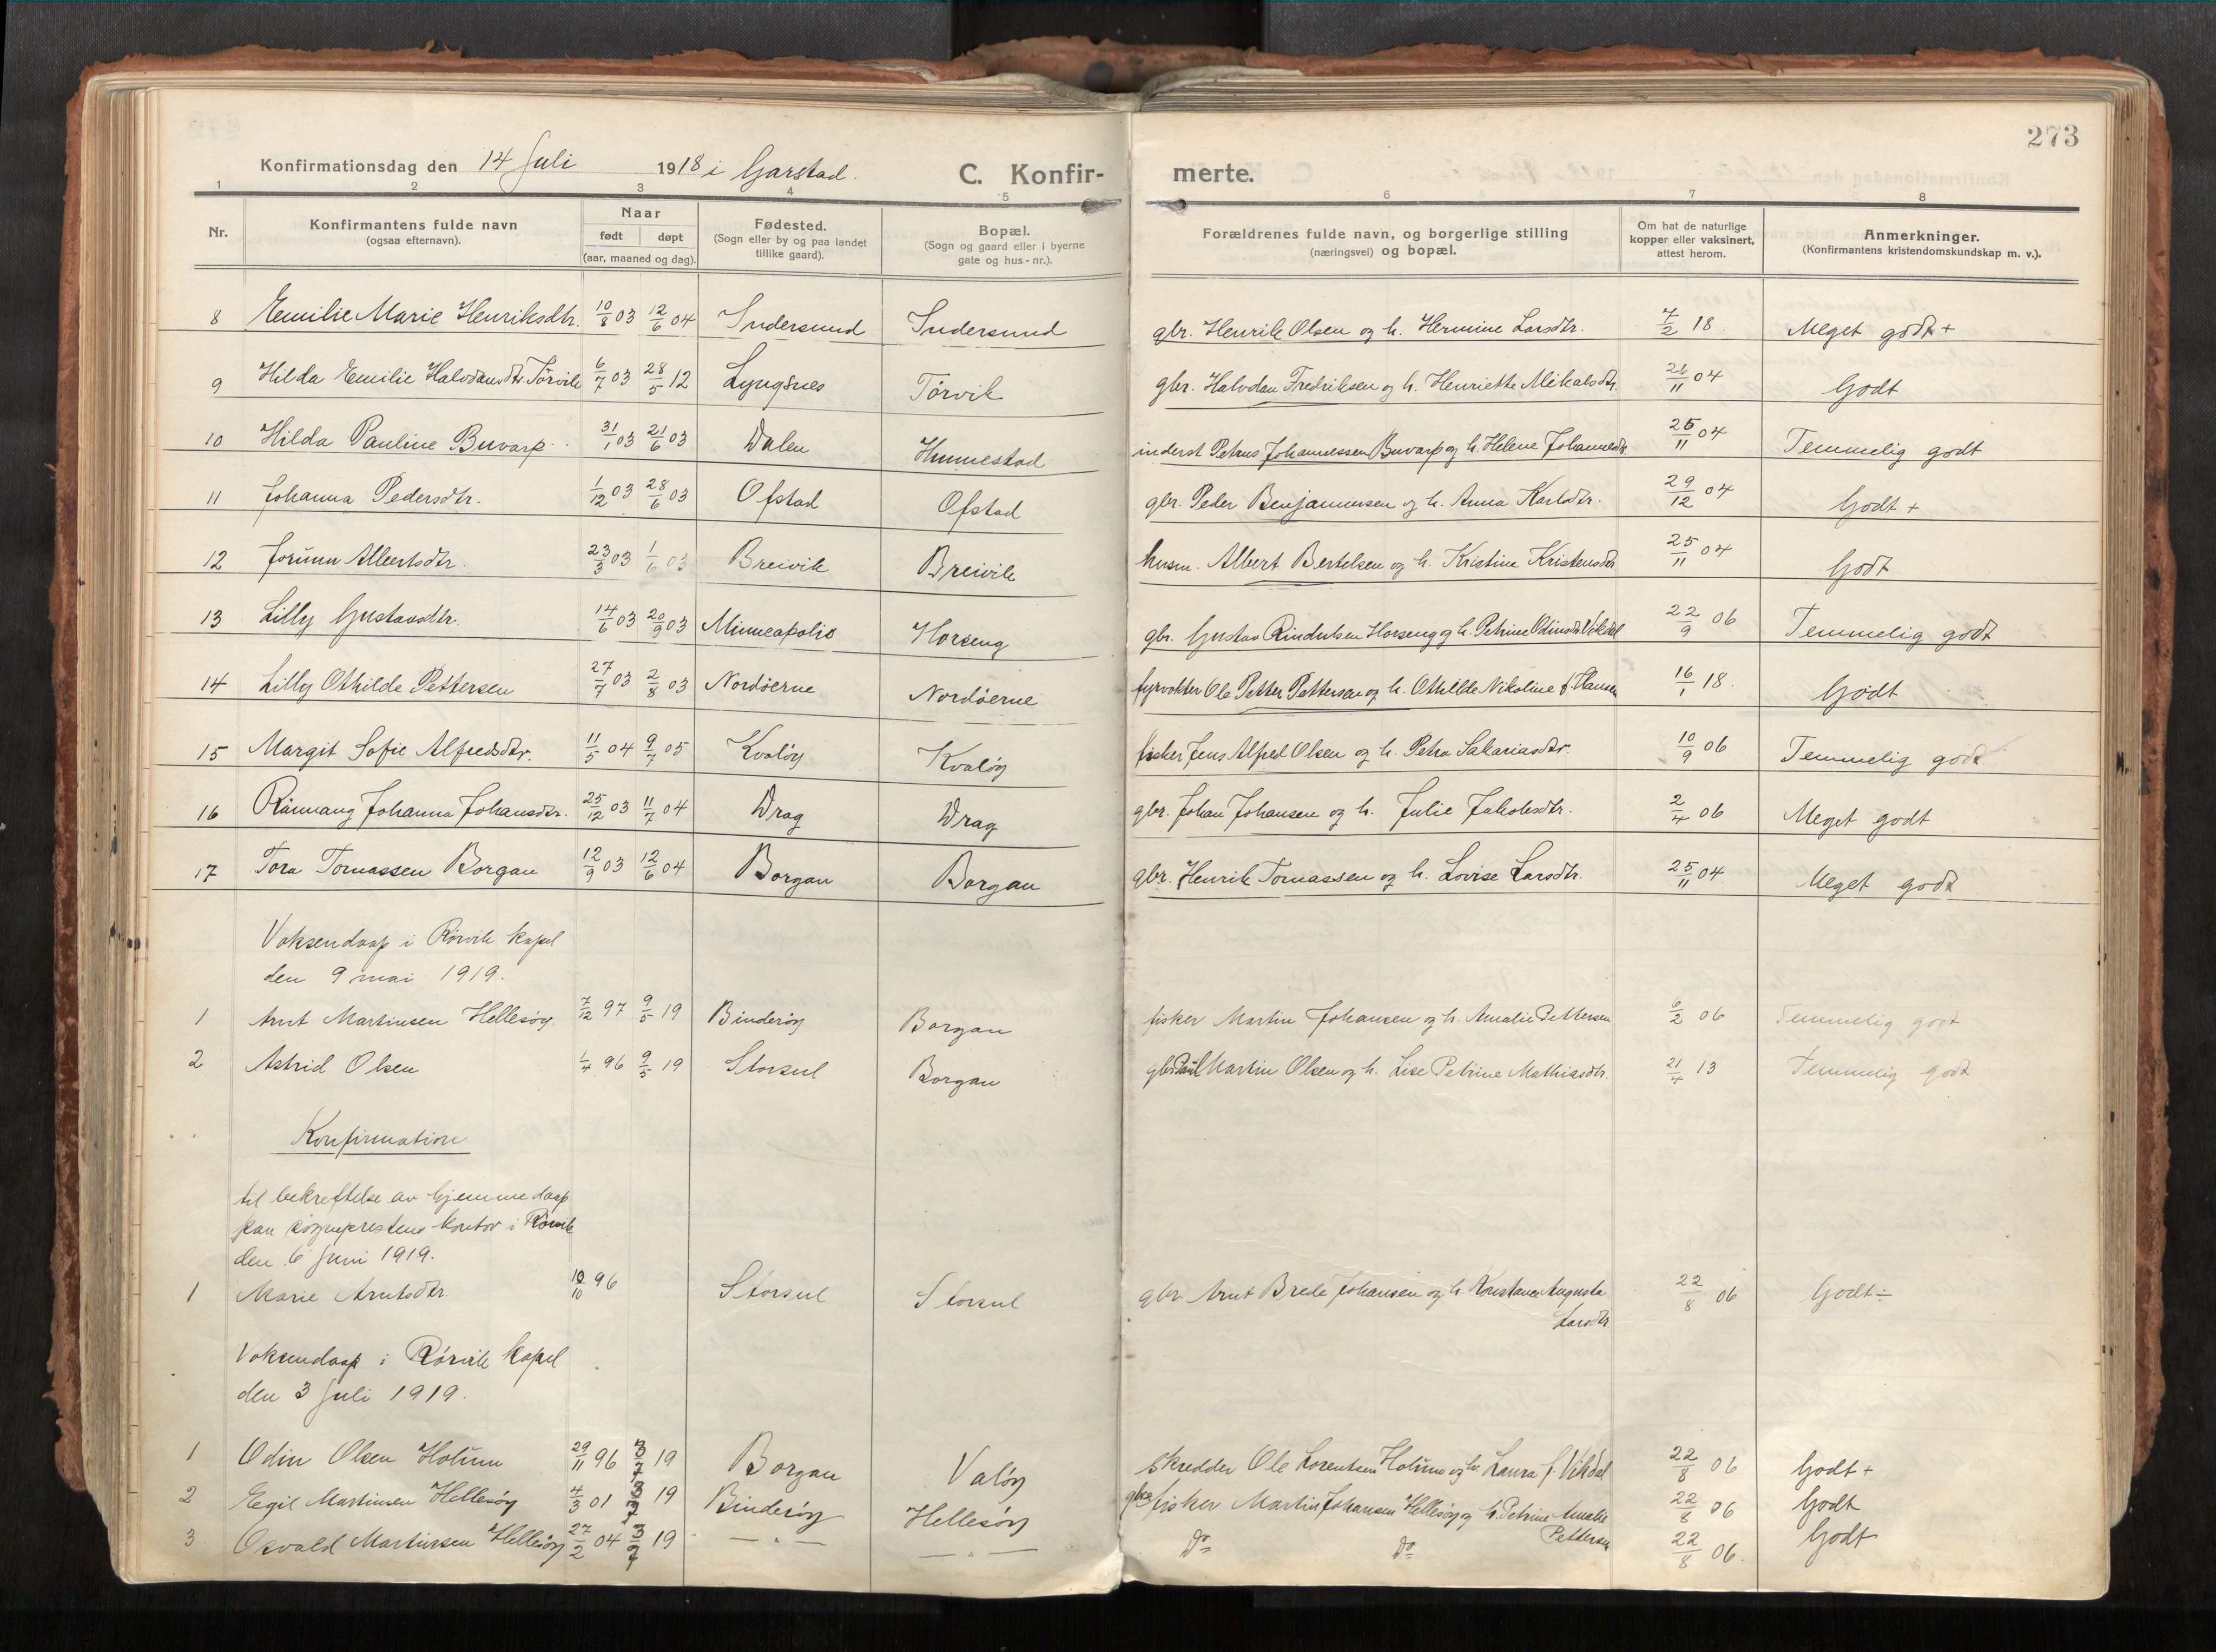 273
Konfirmationsdag den 14 Juli 1918 i Garstad. C. Konfir- merte.
1 2 3 4 5 6 7 8
Nr. Konfirmantens fulde navn (ogsaa efternavn). Naar født døpt (aar, maaned og dag). Fødested. (Sogn eller by og paa landet tillike gaard). Bopæl. (Sogn og gaard eller i byerne gate og hus-nr.). Forældrenes fulde navn, og borgerlige stilling (næringsvei) og bopæl. Om hat de naturlige kopper eller vaksinert, attest herom. Anmerkninger. (Konfirmantens kristendomskundskap m. v.).
8 Emilie Marie Henriksdtr. 10/8 03 12/6 04 Indersund Indersund gbr. Henrik Olsen og h. Hermine Larsdtr. 7/2 18 Meget godt +
9 Hilda Emilie Halvdansdtr. Tørvik 6/7 03 28/5 12 Lyngsnes Tørvik gbr. Halvdan Fredriksen og h. Henriette Mikalsdtr. 26/11 04 Godt
10 Hilda Pauline Buvarp 31/1 03 21/6 03 Dalen Hunnestad inderst Petrus Johannessen Buvarp og h. Helene Johannesdtr. 25/11 04 Temmelig godt
11 Johanna Pedersdtr. 1/12 03 28/6 03 Ofstad Ofstad gbr. Peder Benjaminsen og h. Anna Karlsdtr. 29/12 04 Godt +
12 Jorunn Albertsdtr. 23/3 03 1/6 03 Breivik Breivik husm. Albert Bertelsen og h. Kristine Kristensdtr. 25/11 04 Godt
13 Lilly Gustavsdtr. 14/6 03 20/9 03 Minneapolis Horseng gbr. Gustav Rindulsen Horseng og h. Petrine Odinsdtr. Vikdal 22/9 06 Temmelig godt
14 Lilly Othilde Pettersen 27/7 03 2/8 03 Nordøerne Nordøerne fyrvokter Ole Petter Pettersen og h. Othilde Nikoline f. Hansen 16/1 18. Godt
15 Margit Sofie Alfredsdtr. 11/5 04 9/7 05 Kvaløy Kvaløy fisker Jens Alfred Olsen og h. Petra Sakariasdtr. 10/9 06 Temmelig godt
16 Rannang Johanna Johansdtr. 25/12 03 11/7 04 Drag Drag gbr. Johan Johansen og h. Julie Jakobsdtr. 2/4 06 Meget godt
17 Tora Tomassen Borgan 12/9 03 12/6 04 Borgan Borgan gbr. Henrik Tomassen og h. Lovise Larsdtr. 25/11 04 Meget godt
Voksendaap i Rørvik kapel
den 9 mai 1919.
1 Arnt Martinsen Hellesøy 7/12 97 9/5 19 Binderøy Borgan fisker Martin Johansen og h. Amalie Pettersen 6/2 06 Temmelig godt
2 Astrid Olsen 1/4 96 9/5 19 Storsul Borgan gbr. Paul Martin Olsen og h. Lise Petrine Mathiasdtr. 21/4 13 Temmelig godt
Konfirmation
til bekreftelse av hjemmedaap
paa sogneprestens kontor i Rørvik
den 6 juni 1919.
1 Marie Arntsdtr. 10/10 96 Storsul Storsul gbr Arnt Brede Johansen og h. Kristanea Augusta 22/8 06 Godt ÷
Larsdtr.
Voksendaap i Rørvik kapel
den 3 juli 1919.
1 Odin Olsen Holum 29/11 96 3/7 19 Borgan Valøy skredder Ole Lorentsen Holum og h. Laura f. Vikdal 22/8 06 Godt +
2 Eegil Martinsen Hellesøy 4/3 01 3/7 19 Binderøy Hellesøy gbr. fisker Martin Johansen Hellesøy og h. Petrine Amalie 22/8 06 Godt
Pettersen
3 Osvald Martinsen Hellesøy 27/2 04 3/7 19 — " — — " — do do 22/8 06. Godt